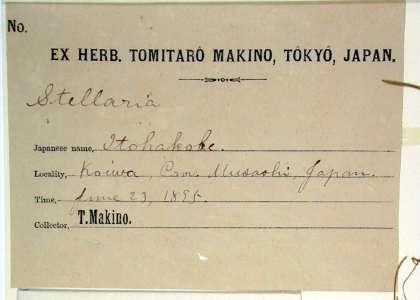 No.
EX HERB. TOMITARÔ MAKINO, TŌKYŌ, JAPAN.
Stellaria
Japanese name, Itohakobe.
Locality, Koiwa, Prov. Musashi, Japan.
Time, June 23, 1895.
Collector, T. Makino.